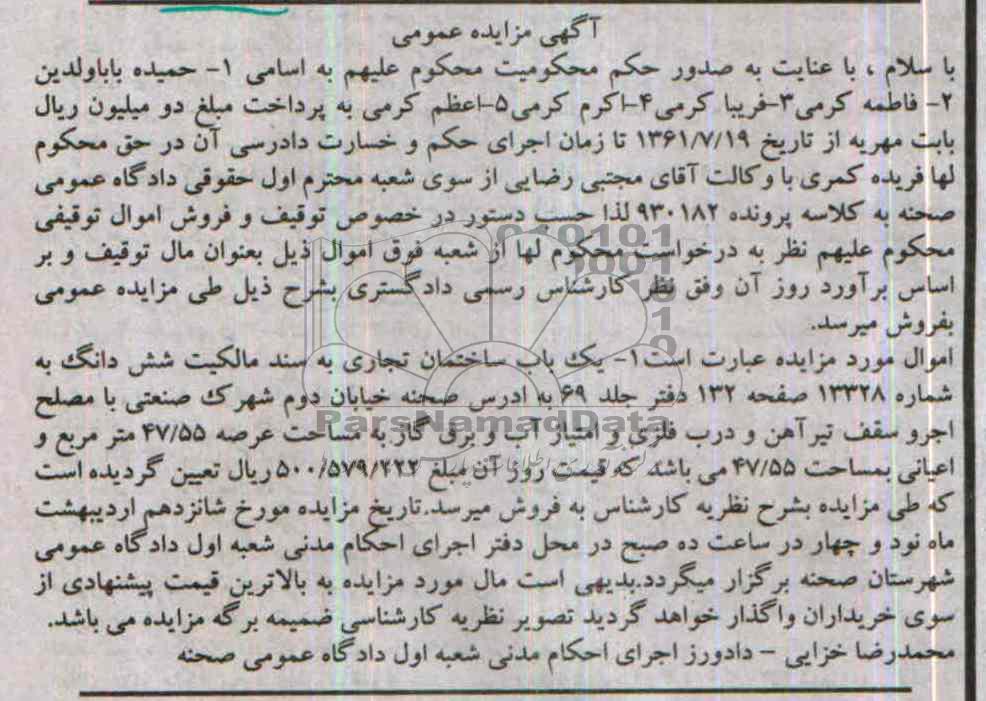 آگهی مزایده عمومی
با سلام ، با عنایت به صدور حکم محکومیت محکوم علیهم به اسامی ۱- حمیده باباولدین
۲- فاطمه کرمی۳-فریبا کرمی۴-اکرم کرمی۵-اعظم کرمی به پرداخت مبلغ دو میلیون ریال
بابت مهریه از تاریخ ۱۳۶۱/۷/۱۹ تا زمان اجرای حکم و خسارت دادرسی آن در حق محکوم
لها فریده کمری با وکالت آقای مجتبی رضایی از سوی شعبه محترم اول حقوقی دادگاه عمومی
صحنه به کلاسه پرونده ۹۳۰۱۸۲ لذا حسب دستور در خصوص توقیف و فروش اموال توقیفی
محکوم علیهم نظر به درخواست محکوم لها از شعبه فوق اموال ذیل بعنوان مال توقیف و بر
اساس برآورد روز آن وفق نظر کارشناس رسمی دادگستری بشرح ذیل طی مزایده عمومی
بفروش میرسد.
اموال مورد مزایده عبارت است۱- یک باب ساختمان تجاری به سند مالکیت شش دانگ به
شماره ۱۳۳۲۸ صفحه ۱۳۲ دفتر جلد ۶۹ به ادرس صحنه خیابان دوم شهرک صنعتی با مصلح
اجرو سقف تیرآهن و درب فلزی و امتیاز آب و برق گاز به مساحت عرصه ۴۷/۵۵ متر مربع و
اعیانی بمساحت ۴۷/۵۵ می باشد که قیمت روز آن مبلغ ۵۰۰/۵۷۹/۲۲۲ ریال تعیین گردیده است
که طی مزایده بشرح نظریه کارشناس به فروش میرسد.تاریخ مزایده مورخ شانزدهم اردیبهشت
ماه نود و چهار در ساعت ده صبح در محل دفتر اجرای احکام مدنی شعبه اول دادگاه عمومی
شهرستان صحنه برگزار میگردد.بدیهی است مال مورد مزایده به بالاترین قیمت پیشنهادی از
سوی خریداران واگذار خواهد گردید تصویر نظریه کارشناسی ضمیمه برگه مزایده می باشد.
محمدرضا خزایی - دادورز اجرای احکام مدنی شعبه اول دادگاه عمومی صحنه
ParsNamadData